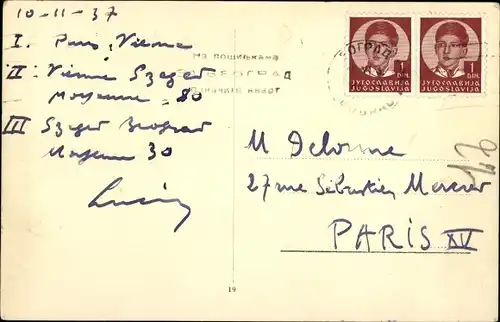 10-11-37
I. Paris, Vienne
II Vienne Szeged
Moyenne 80
III Szeged Beograd
Moyenne 30
Lucien
НА ПОШИЉКАМА
БЕОГРАД
ОЗНАЧИТЕ КВАРТ
БЕОГРАД
1
DIN.
ЈУГОСЛАВИЈА
JUGOSLAVIJA
1
DIN.
ЈУГОСЛАВИЈА
JUGOSLAVIJA
M Delorme
27 rue Sébastien Mercier
PARIS XV
19